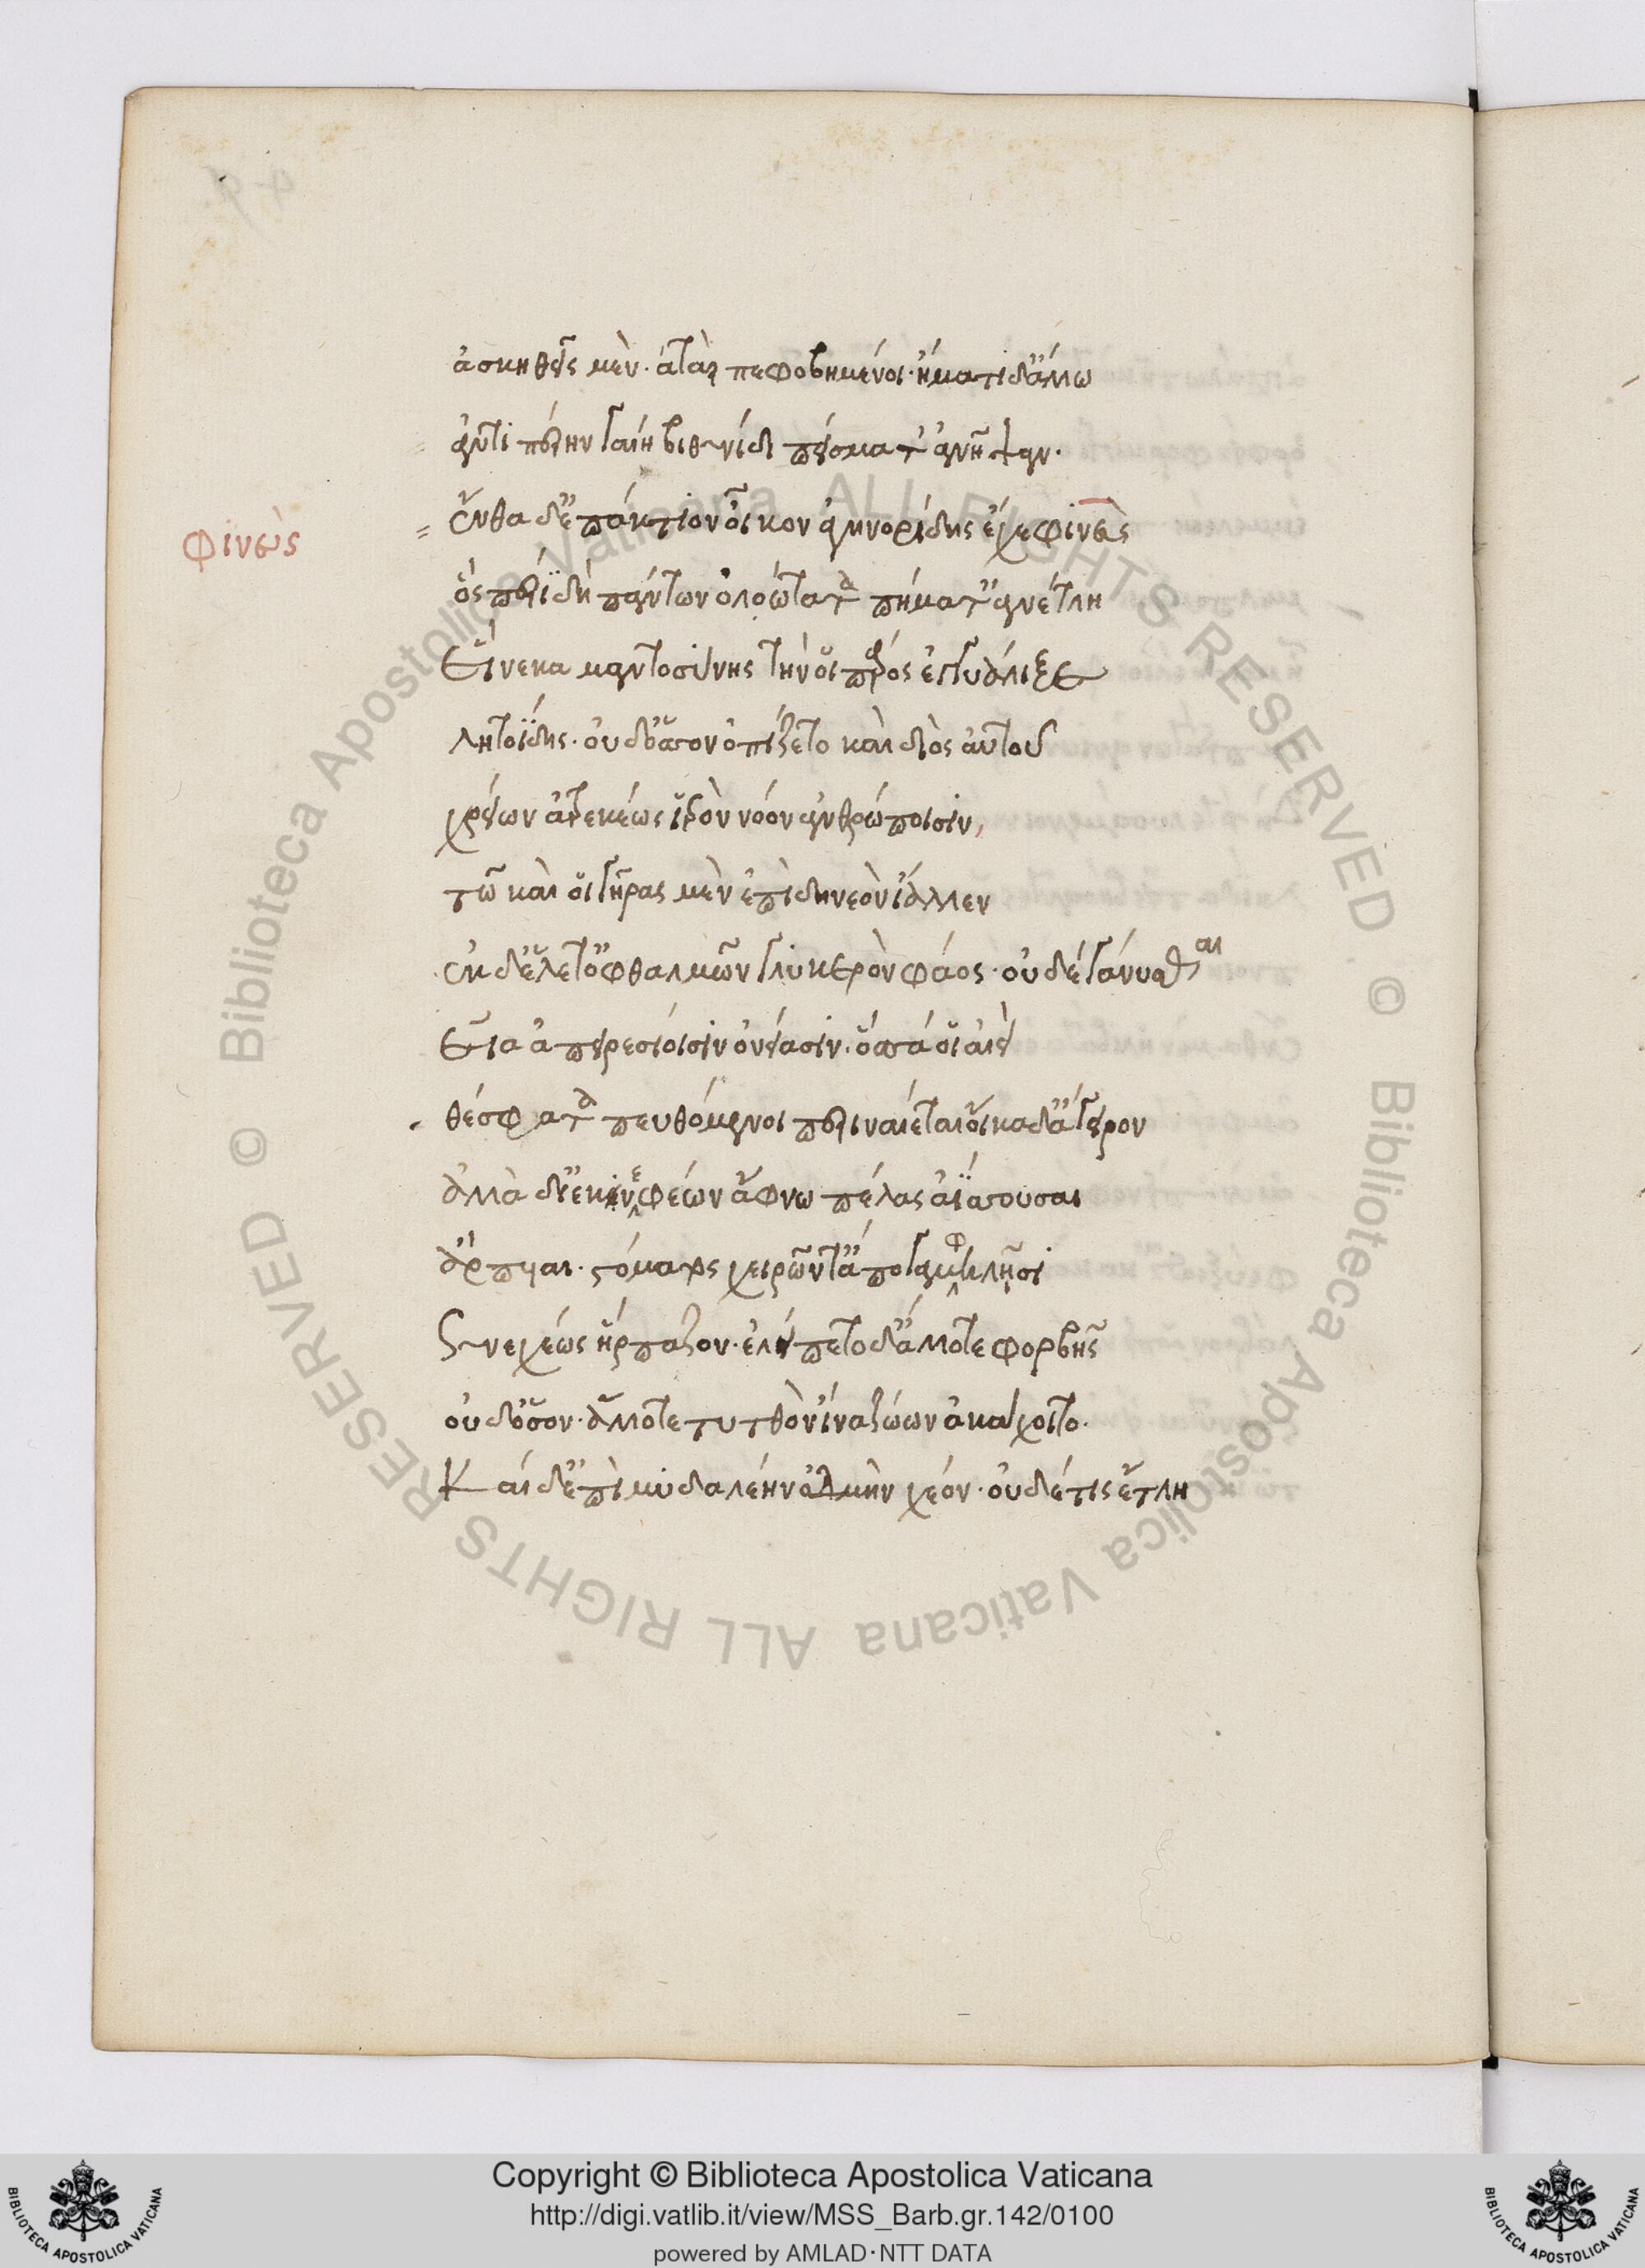 ἀσκηθεῖς μὲν. ἀτὰρ πεφοβημένοι. ἤματι δ' ἄλλω
ἀντιπέρην γαίη βιθυνίδι πείσματ' ἀνῆψαν.
ἔνθα δ' ἐπάκτιον οἶκον ἀγηνορίδης ἔχε φινεὺς
φινεὺς
ὃς περὶ δὴ πάντων ὀλοώτατα πήματ' ἀνέτλη
Εἵνεκα μαντοσύνης τήν οἱ πάρος ἐγγυάλιξε
λητοΐδης. οὐδ' ὅσσον ὀπίζετο καὶ διὸς αὐτοῦ
χρείων ἀτρεκέως ἱερὸν νόον ἀνθρώποισιν,
τῶ καί οἱ γῆρας μὲν ἐπὶ δηνεὸν ἴαλλεν
ἐκ δ' ἕλετ' ὀφθαλμῶν γλυκερὸν φάος. οὐδὲ γάνυσθαι
Εἴα ἀπειρεσίοισιν ὀνείασιν. ὅσσά οἱ αἰεὶ
θέσφατα πευθόμενοι περιναιέται οἴκαδ' ἄγειρον
ἀλλὰ δι' ἐκ νεφέων ἄφνω πέλας ἀΐσσουσαι
ἅρπυιαι. στόματος χειρῶν τ' ἄπο γαμφηλῆσι
Συνεχέως ἥρπαζον. ἐλείπετο δ' ἄλλοτε φορβῆς
οὐδ' ὅσον. ἄλλοτε τυτθὸν ἵνα ζώων ἀκάχοιτο.
Καί δ' ἐπὶ μυδαλέην ὀδμὴν χέον. οὐδέ τις ἔτλη
Copyright © Biblioteca Apostolica Vaticana
http://digi.vatlib.it/view/MSS_Barb.gr.142/0100
powered by AMLAD·NTT DATA
BIBLIOTECA APOSTOLICA VATICANA
BIBLIOTECA APOSTOLICA VATICANA
© Biblioteca Apostolica Vaticana ALL RIGHTS RESERVED
© Biblioteca Apostolica Vaticana ALL RIGHTS RESERVED